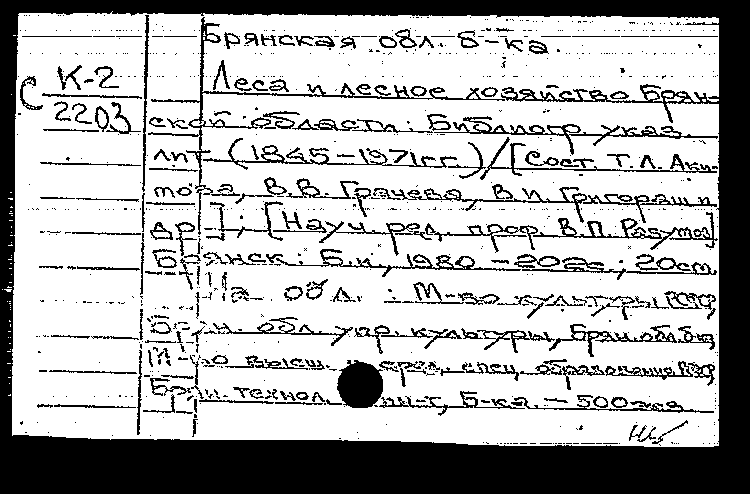 Брянская обл. б-ка.
С К-2
2203
Леса и лесное хозяйство Брян-
ской области: Библиогр. указ.
лит. (1845-1971гг.)/[Сост. Т.Л. Аки-
това, В.В. Грачева, В.И. Григораш и
др.]; [Науч. ред. проф. В.П. Разумов]
Брянск: Б.и., 1980 - 202с.; 20см.
На обл.: М-во культуры РСФСР,
Брян. обл. упр. культуры, Брян. обл. б-ка,
М-во высш. и сред. спец. образования РСФСР
Брян. технол. ин-т, Б-ка. - 500экз